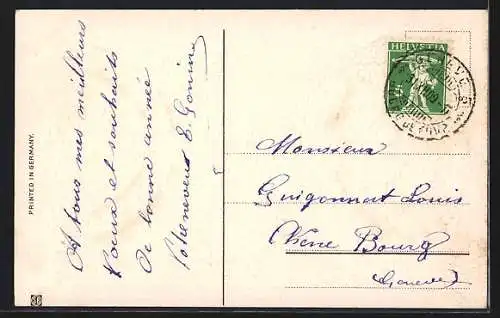 A tous mes meilleurs
Voeux et souhaits
de bonne année
E. Gonin
PRINTED IN GERMANY.
HELVETIA
Monsieur
Guigonnat Louis
Bourg
Genève